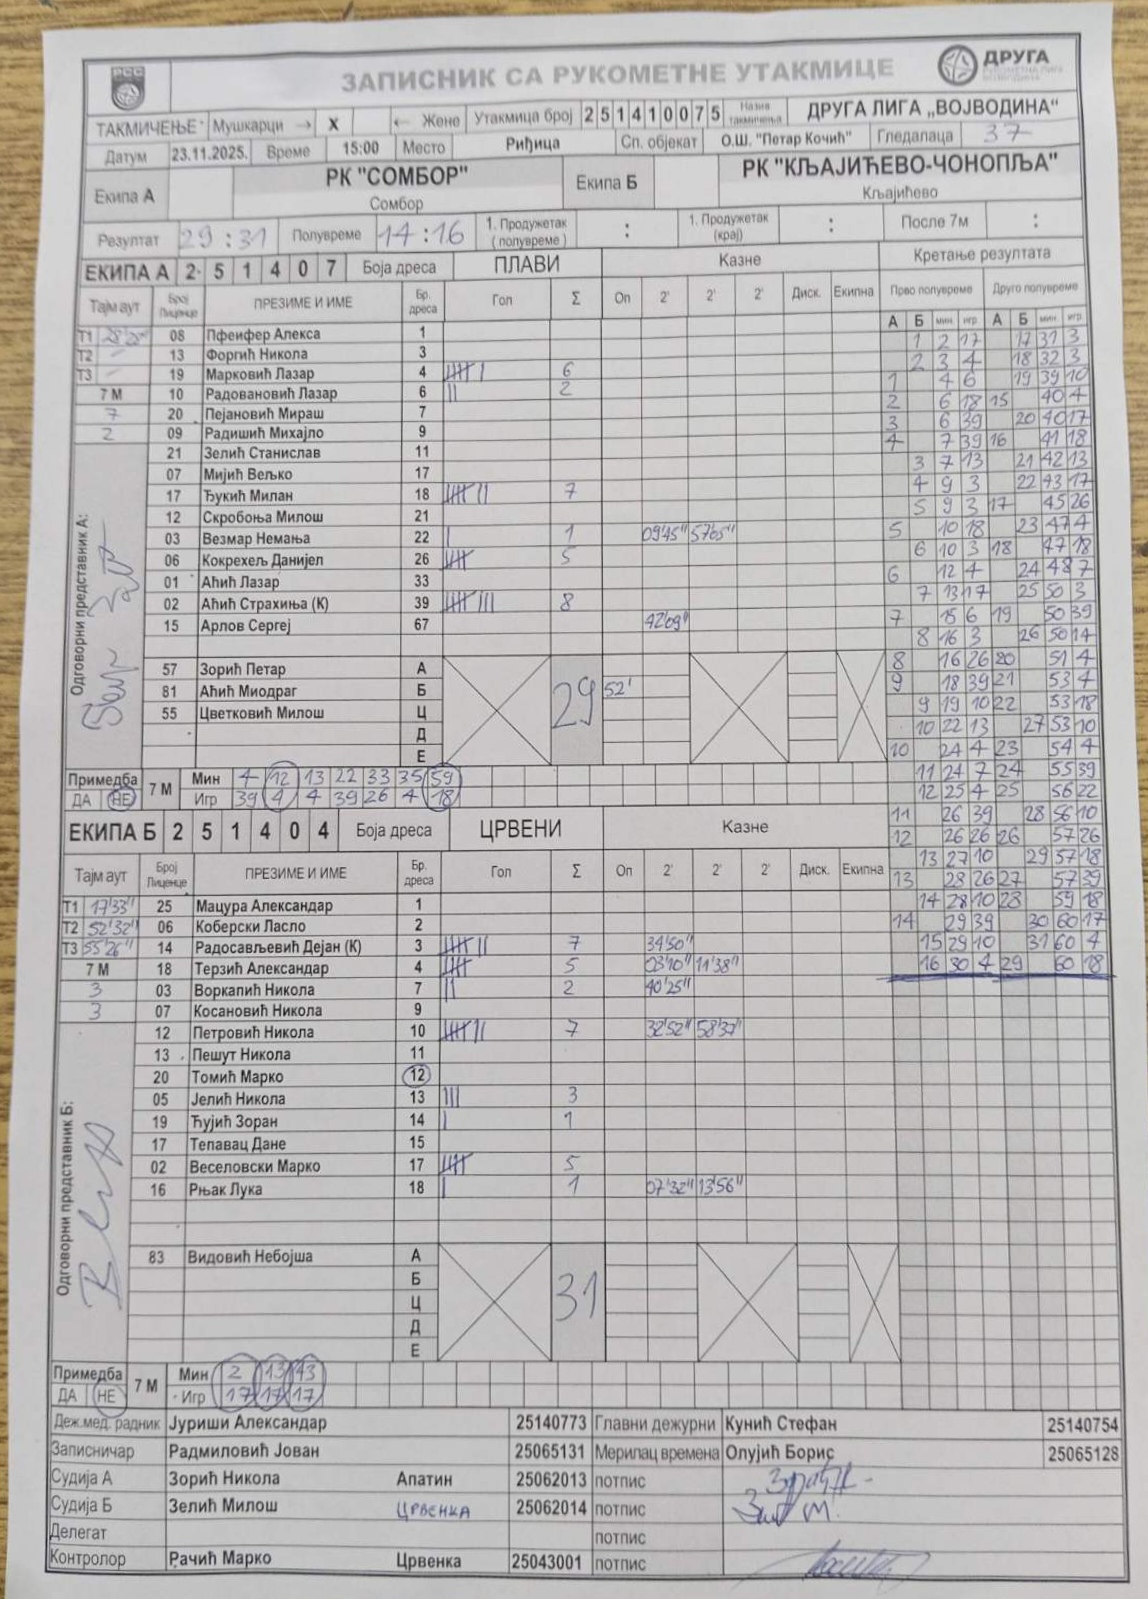 РСС
ЗАПИСНИК СА РУКОМЕТНЕ УТАКМИЦЕ
ДРУГА
ТАКМИЧЕЊЕ Мушкарци → X ← Жене Утакмица број 2 5 1 4 1 0 0 7 5 Назив такмичења ДРУГА ЛИГА „ВОЈВОДИНА“
Датум 23.11.2025. Време 15:00 Место Риђица Сп. објекат О.Ш. "Петар Кочић" Гледалаца 37
Екипа А РК "СОМБОР" Екипа Б РК "КЉАЈИЋЕВО-ЧОНОПЉА"
Сомбор Кљајићево
Резултат 29 : 31 Полувреме 14 : 16 1. Продужетак (полувреме) : 1. Продужетак (крај) : После 7м :
ЕКИПА А 2 5 1 4 0 7 Боја дреса ПЛАВИ Казне Кретање резултата
Тајм аут Број Лиценце ПРЕЗИМЕ И ИМЕ Бр. дреса Гол Σ Оп 2' 2' 2' Диск. Екипна Прво полувреме Друго полувреме
А Б мин игр А Б мин игр
Т1 28'28" 08 Пфеифер Алекса 1
Т2 - 13 Форгић Никола 3
Т3 - 19 Марковић Лазар 4 6
7 М 10 Радовановић Лазар 6 2
7 20 Пејановић Мираш 7
2 09 Радишић Михајло 9
21 Зелић Станислав 11
07 Мијић Вељко 17
17 Ђукић Милан 18 7
12 Скробоња Милош 21
03 Везмар Немања 22 1 09'45" 57'05"
06 Кокрехељ Данијел 26 5
01 Аћић Лазар 33
02 Аћић Страхиња (К) 39 8
15 Арлов Сергеј 67 42'09"
57 Зорић Петар А
81 Аћић Миодраг Б 29 52'
55 Цветковић Милош Ц
Д
Е
Одговорни представник А:
Примедба 7 М Мин 4 12 13 22 33 35 59
ДА НЕ Игр 39 4 4 39 26 4 18
1 2 17 17 31 3
2 3 4 18 32 3
1 4 6 19 39 10
2 6 18 15 40 4
3 6 39 20 40 17
4 7 39 16 41 18
3 7 13 21 42 13
4 9 3 22 43 17
5 9 3 17 45 26
5 10 18 23 47 4
6 10 3 18 47 18
6 12 4 24 48 7
7 13 17 25 50 3
7 15 6 19 50 39
8 16 3 26 50 14
8 16 26 20 51 4
9 18 39 21 53 4
9 19 10 22 53 18
10 22 13 27 53 10
10 24 4 23 54 4
11 24 7 24 55 39
12 25 4 25 56 22
11 26 39 28 56 10
12 26 26 26 57 26
13 27 10 29 57 18
13 28 26 27 57 39
14 28 10 28 59 18
14 29 39 30 60 17
15 29 10 31 60 4
16 30 4 29 60 18
ЕКИПА Б 2 5 1 4 0 4 Боја дреса ЦРВЕНИ Казне
Тајм аут Број Лиценце ПРЕЗИМЕ И ИМЕ Бр. дреса Гол Σ Оп 2' 2' 2' Диск. Екипна
Т1 17'33" 25 Мацура Александар 1
Т2 52'32" 06 Коберски Ласло 2
Т3 55'26" 14 Радосављевић Дејан (К) 3 7 34'50"
7 М 18 Терзић Александар 4 5 03'10" 11'38"
3 03 Воркапић Никола 7 2 40'25"
3 07 Косановић Никола 9
12 Петровић Никола 10 7 32'52" 58'37"
13 Пешут Никола 11
20 Томић Марко 12
05 Јелић Никола 13 3
19 Ћујић Зоран 14 1
17 Тепавац Дане 15
02 Веселовски Марко 17 5
16 Рњак Лука 18 1 07'32" 13'56"
83 Видовић Небојша А
Б
Ц 31
Д
Е
Одговорни представник Б:
Примедба 7 М Мин 2 13 43
ДА НЕ Игр 17 17 17
Деж.мед. радник Јуриши Александар 25140773 Главни дежурни Кунић Стефан 25140754
Записничар Радмиловић Јован 25065131 Мерилац времена Олујић Борис 25065128
Судија А Зорић Никола Апатин 25062013 потпис
Судија Б Зелић Милош ЦРВЕНКА 25062014 потпис
Делегат потпис
Контролор Рачић Марко Црвенка 25043001 потпис